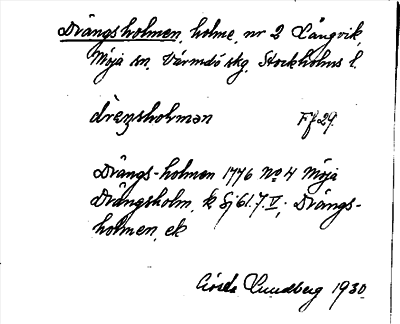 Drängsholmen, holme, nr 2 Långvik,
Möja sn, Värmdö skg, Stockholms l.
dreŋsholman Ff 29.
Drängs-holmen 1776 No 4 Möja
Drängsholm, k Sj 61.7.V; Drängs-
holmen, ek
Gösta Lundberg 1930